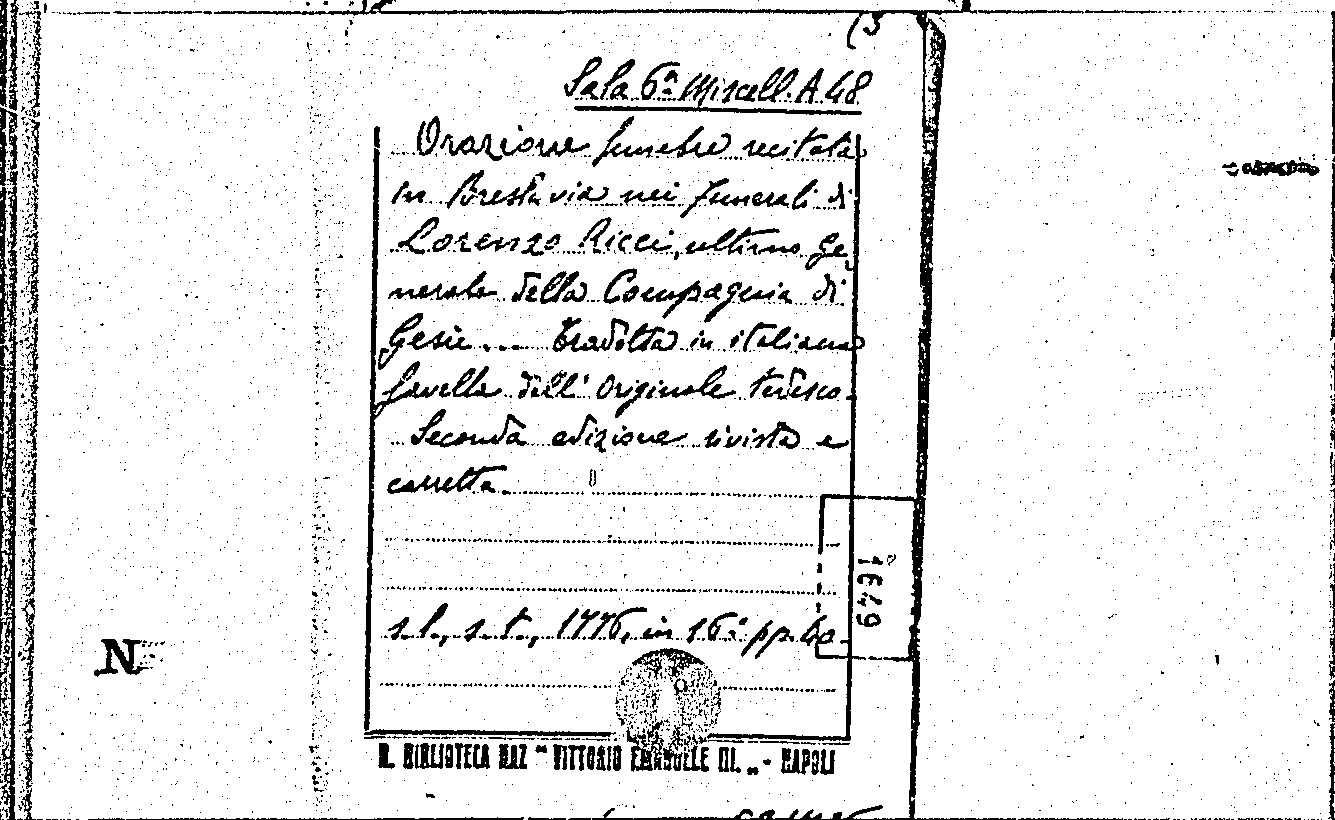 (3
Sala 6ª Miscell. A.48
Orazione funebre recitata
in Breslavia nei funerali di
Lorenzo Ricci, ultimo Ge-
nerale della Compagnia di
Gesù ... Tradotta in italiana
favella dell' originale tedesco.
Seconda edizione rivista e
corretta.
1649
s.l., s.t., 1776, in 16º pp.
N
R. BIBLIOTECA NAZ "VITTORIO EMANUELE III." - NAPOLI